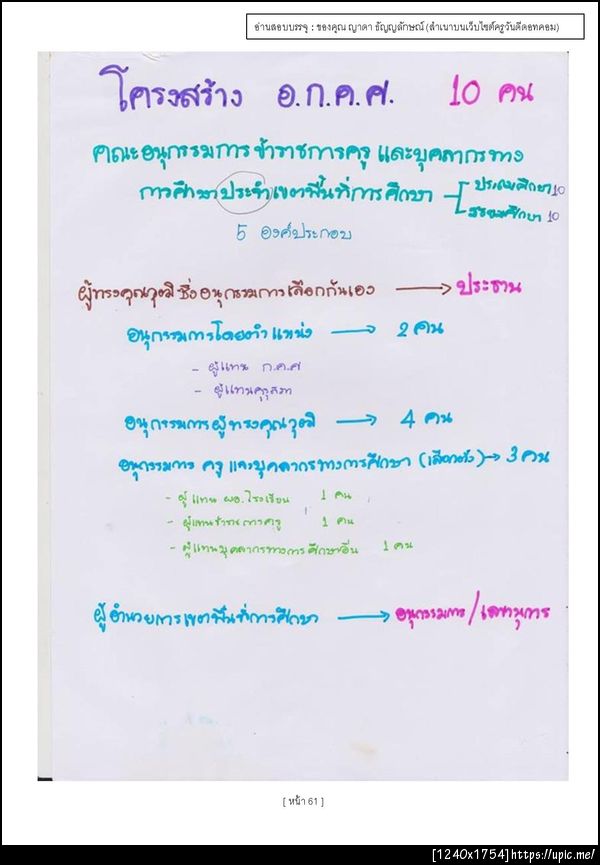 อ่านสอบบรรจุ : ของคุณ ญาดา ธัญญลักษณ์ (สำเนาบนเว็บไซต์ครูวันดีดอทคอม)
โครงสร้าง อ.ก.ค.ศ. 10 คน
คณะอนุกรรมการข้าราชการครู และบุคลากรทาง
การศึกษาประจำเขตพื้นที่การศึกษา
ประถมศึกษา 10
มัธยมศึกษา 10
5 องค์ประกอบ
ผู้ทรงคุณวุฒิ ซึ่งอนุกรรมการเลือกกันเอง → ประธาน
อนุกรรมการโดยตำแหน่ง → 2 คน
- ผู้แทน ก.ค.ศ
- ผู้แทนคุรุสภา
อนุกรรมการผู้ทรงคุณวุฒิ → 4 คน
อนุกรรมการ ครู และบุคลากรทางการศึกษา (เลือกตั้ง) → 3 คน
- ผู้แทน ผอ.โรงเรียน 1 คน
- ผู้แทนข้าราชการครู 1 คน
- ผู้แทนบุคลากรทางการศึกษาอื่น 1 คน
ผู้อำนวยการเขตพื้นที่การศึกษา → อนุกรรมการ/เลขานุการ
[ หน้า 61 ]
[1240x1754]https://upic.me/